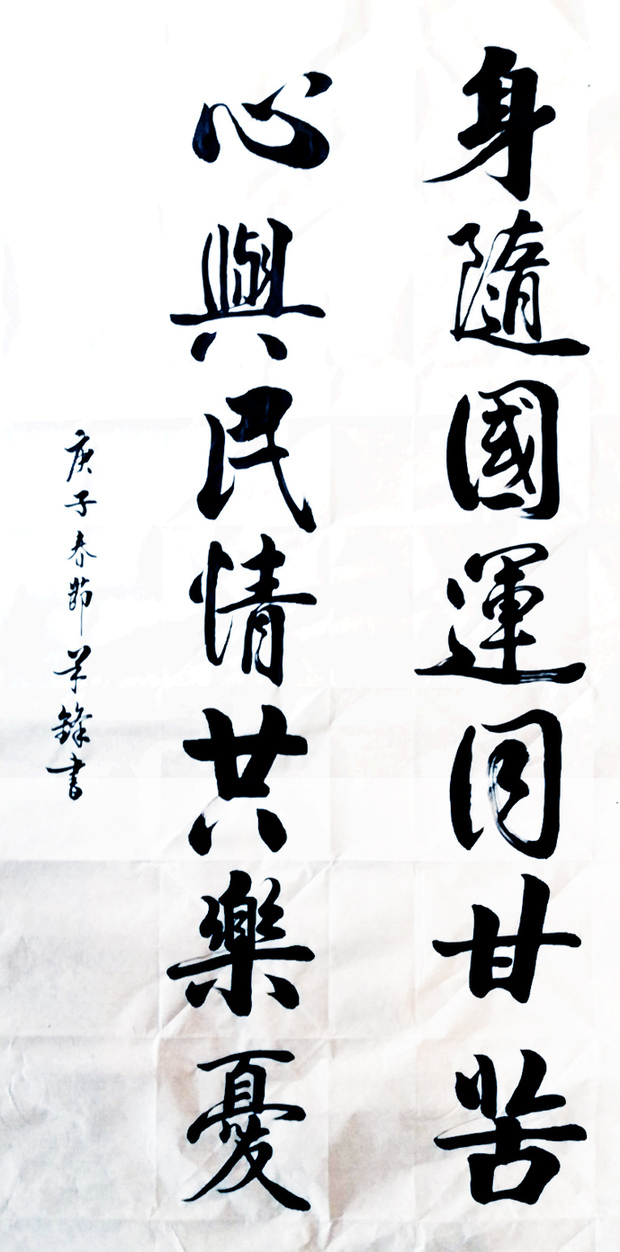 身隨國運同甘苦
心與民情共樂憂
庚子春節學鋒書